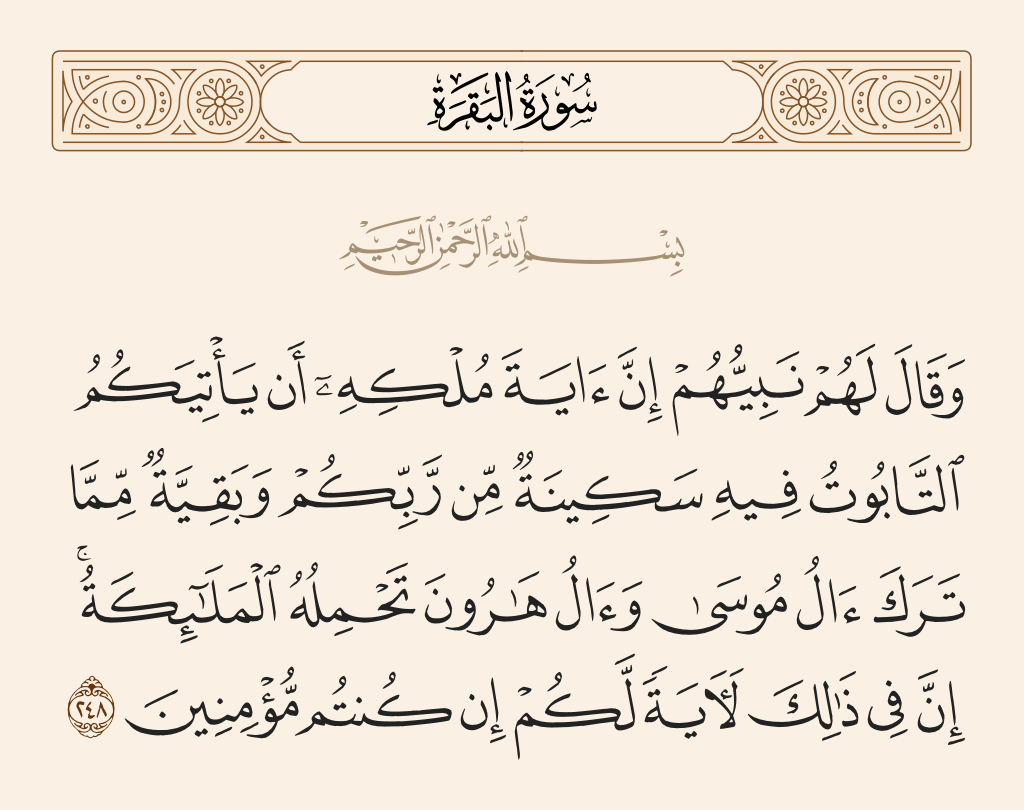 سُورَةُ البَقَرَةِ
بِسْمِ ٱللَّهِ ٱلرَّحْمَٰنِ ٱلرَّحِيمِ
وَقَالَ لَهُمْ نَبِيُّهُمْ إِنَّ ءَايَةَ مُلْكِهِۦٓ أَن يَأْتِيَكُمُ
ٱلتَّابُوتُ فِيهِ سَكِينَةٌ مِّن رَّبِّكُمْ وَبَقِيَّةٌ مِّمَّا
تَرَكَ ءَالُ مُوسَىٰ وَءَالُ هَـٰرُونَ تَحْمِلُهُ ٱلْمَلَـٰٓئِكَةُ ۚ
إِنَّ فِى ذَٰلِكَ لَـَٔايَةً لَّكُمْ إِن كُنتُم مُّؤْمِنِينَ ٢٤٨